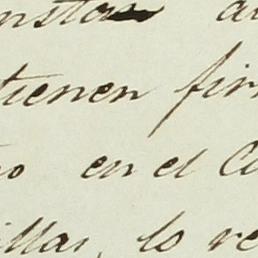 nstas a
tienen fir
o en el C
illas, lo re